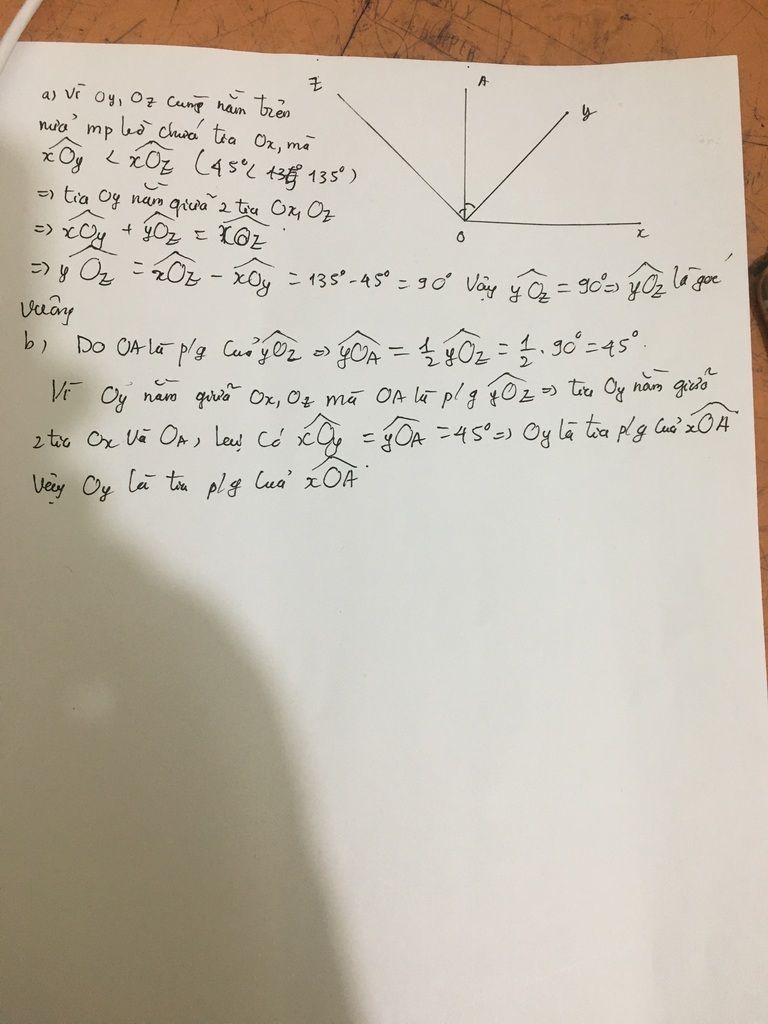 a) Vì Oy, Oz cùng nằm trên
nửa mp bờ chứa tia Ox, mà
xOy < xOz (45° < 135°)
=> tia Oy nằm giữa 2 tia Ox, Oz
=> xOy + yOz = xOz
=> yOz = xOz - xOy = 135° - 45° = 90° Vậy yOz = 90° => yOz là góc
vuông
b) Do OA là p/g của yOz => yOA = 1/2 yOz = 1/2 . 90° = 45°.
Vì Oy nằm giữa Ox, Oz mà OA là p/g yOz => tia Oy nằm giữa
2 tia Ox và OA, lại có xOy = yOA = 45° => Oy là tia p/g của xOA
Vậy Oy là tia p/g của xOA
z
A
y
O
x